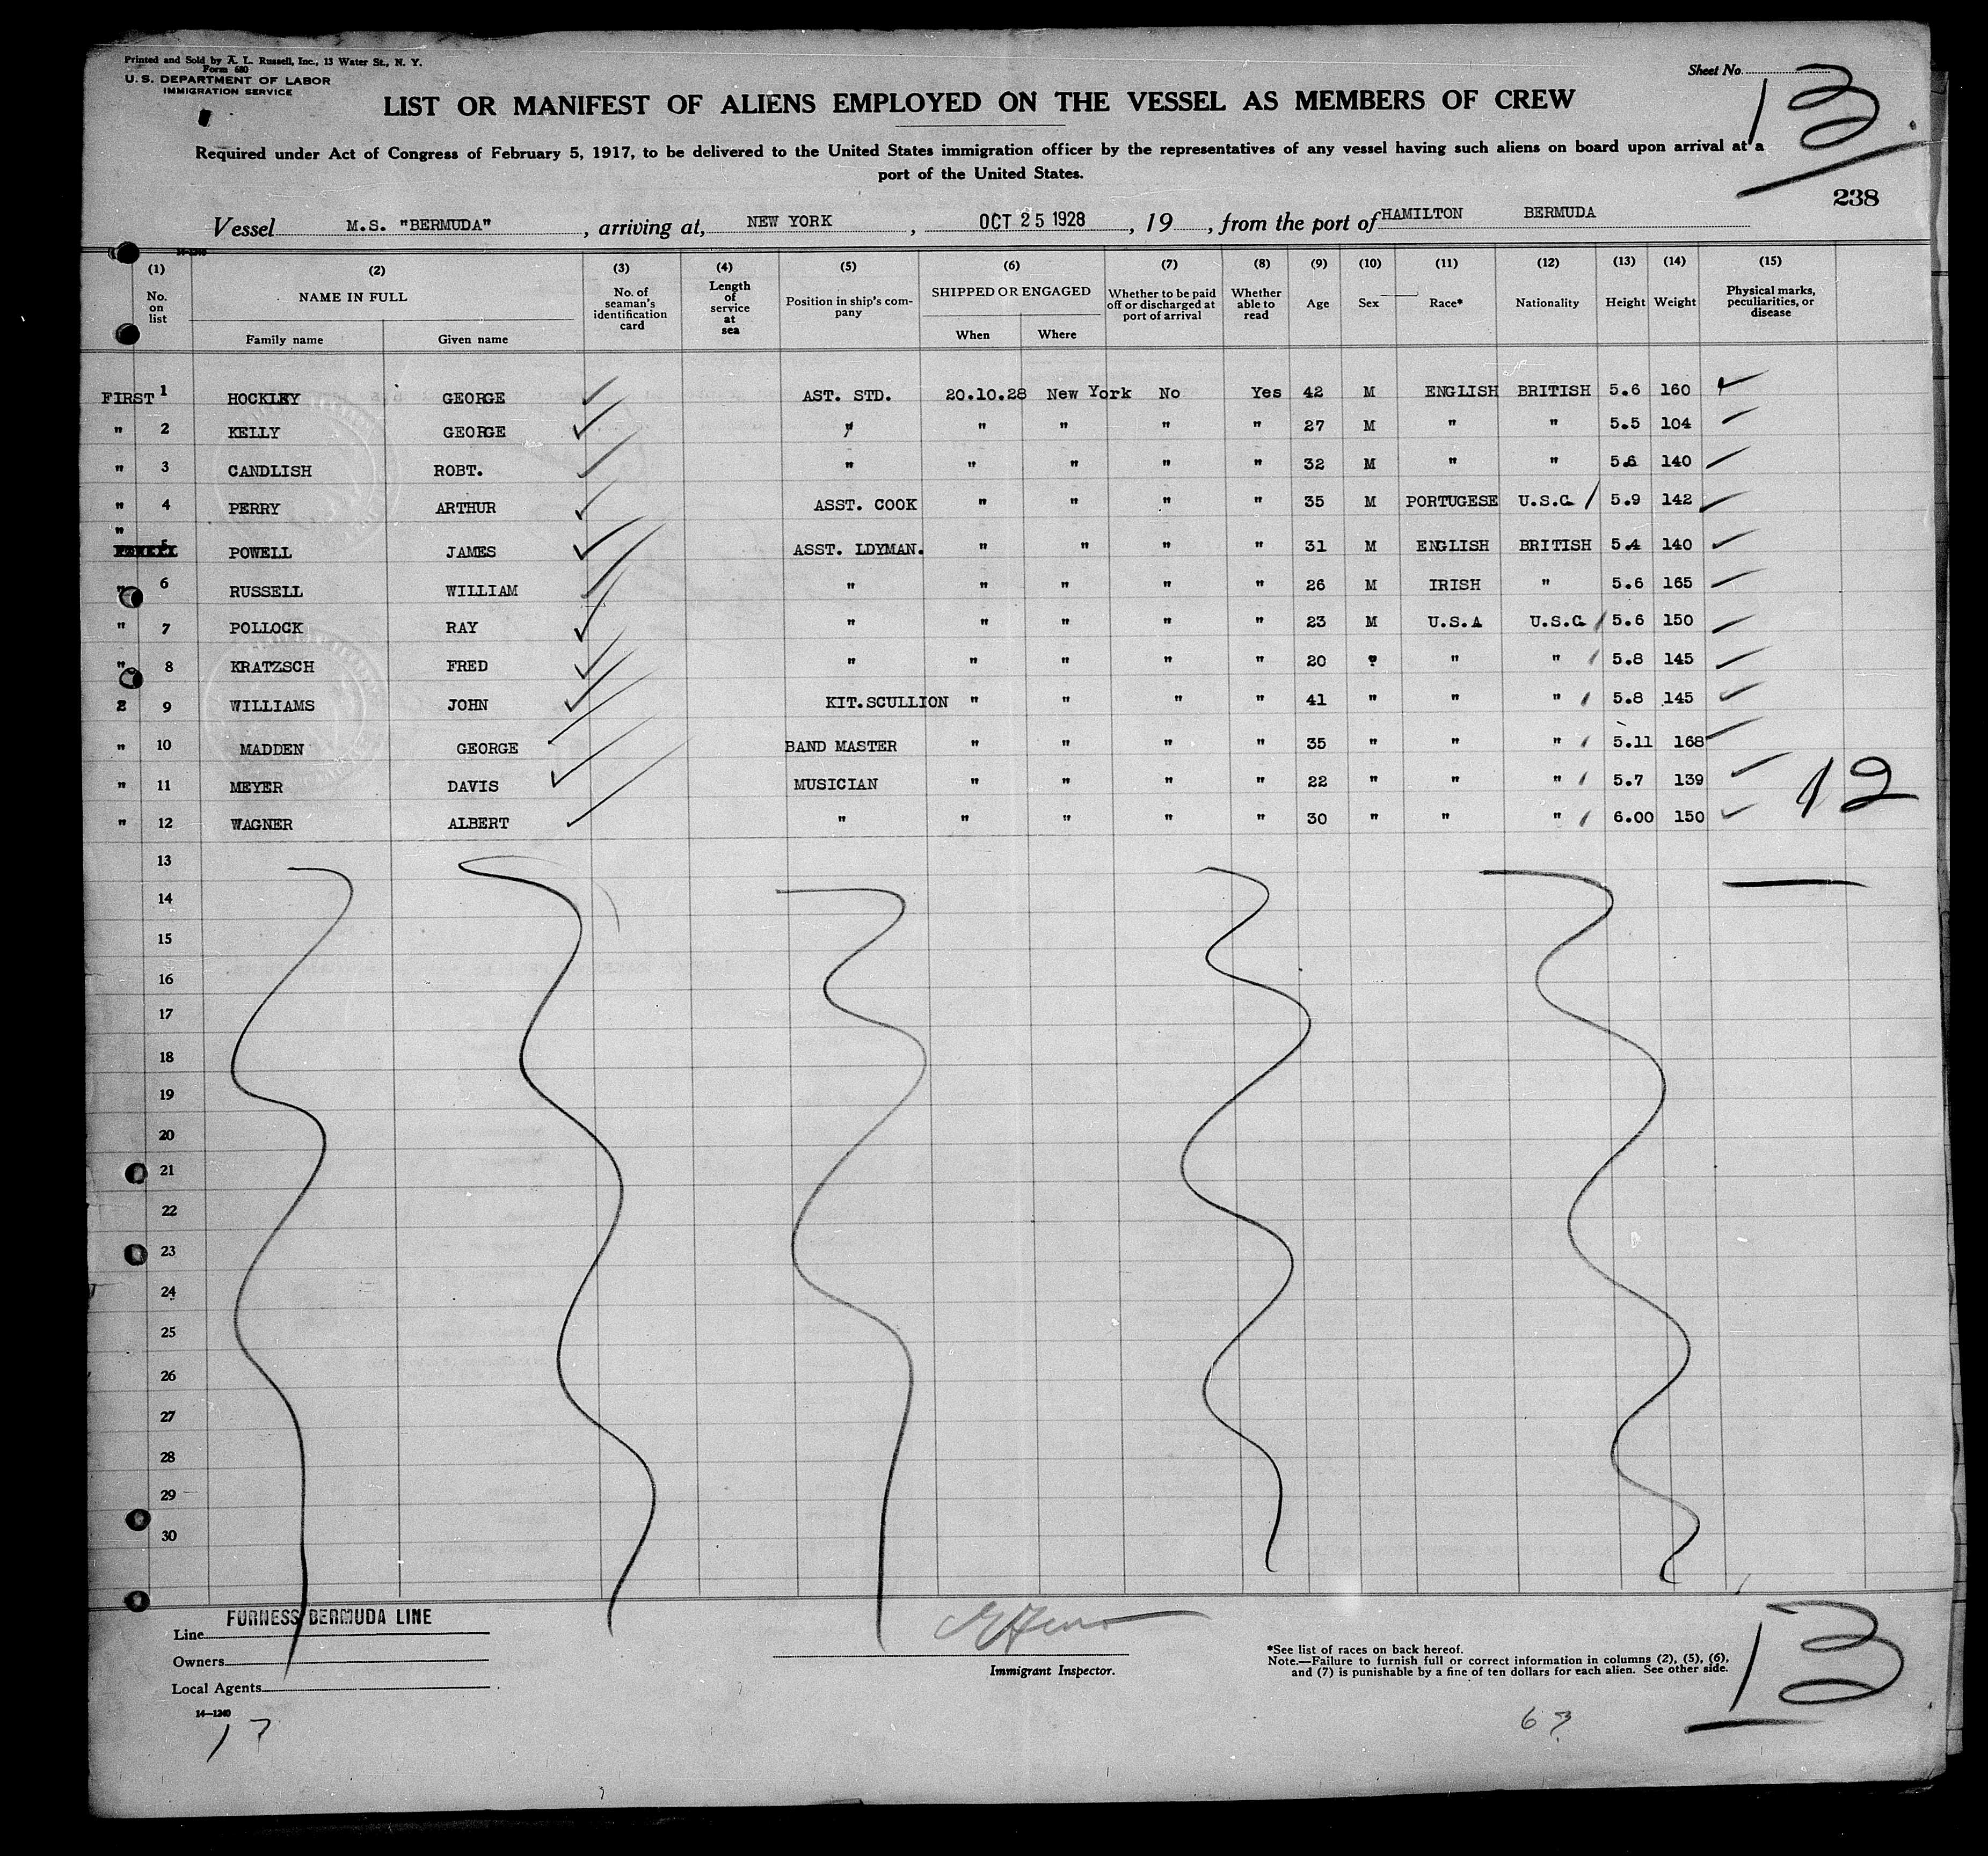 Printed and Sold by A. L. Russell, Inc., 13 Water St., N. Y.
Form 680
U. S. DEPARTMENT OF LABOR
IMMIGRATION SERVICE
Sheet No.
13
LIST OR MANIFEST OF ALIENS EMPLOYED ON THE VESSEL AS MEMBERS OF CREW
Required under Act of Congress of February 5, 1917, to be delivered to the United States immigration officer by the representatives of any vessel having such aliens on board upon arrival at a
port of the United States.
238
Vessel M.S. "BERMUDA", arriving at, NEW YORK, OCT 25 1928, 19, from the port of HAMILTON BERMUDA
14-1240
(1) (2) (3) (4) (5) (6) (7) (8) (9) (10) (11) (12) (13) (14) (15)
No. on list NAME IN FULL No. of seaman's identification card Length of service at sea Position in ship's company SHIPPED OR ENGAGED Whether to be paid off or discharged at port of arrival Whether able to read Age Sex Race* Nationality Height Weight Physical marks, peculiarities, or disease
Family name Given name When Where
FIRST 1 HOCKLEY GEORGE AST. STD. 20.10.28 New York No Yes 42 M ENGLISH BRITISH 5.6 160
" 2 KELLY GEORGE " " " " " 27 M " " 5.5 104
" 3 CANDLISH ROBT. " " " " " 32 M " " 5.6 140
" 4 PERRY ARTHUR ASST. COOK " " " " 35 M PORTUGESE U.S.C. 5.9 142
" 5 POWELL JAMES ASST. LDYMAN. " " " " 31 M ENGLISH BRITISH 5.4 140
" 6 RUSSELL WILLIAM " " " " " 26 M IRISH " 5.6 165
" 7 POLLOCK RAY " " " " " 23 M U.S.A U.S.C. 5.6 150
" 8 KRATZSCH FRED " " " " " 20 " " " 5.8 145
2 9 WILLIAMS JOHN KIT.SCULLION " " " " 41 " " " 5.8 145
" 10 MADDEN GEORGE BAND MASTER " " " " 35 " " " 5.11 168
" 11 MEYER DAVIS MUSICIAN " " " " 22 " " " 5.7 139
" 12 WAGNER ALBERT " " " " " 30 " " " 6.00 150
12
13
14
15
16
17
18
19
20
21
22
23
24
25
26
27
28
29
30
Line FURNESS BERMUDA LINE
Owners
Local Agents
14—1240
Immigrant Inspector.
*See list of races on back hereof.
Note.—Failure to furnish full or correct information in columns (2), (5), (6),
and (7) is punishable by a fine of ten dollars for each alien. See other side.
13
17
63